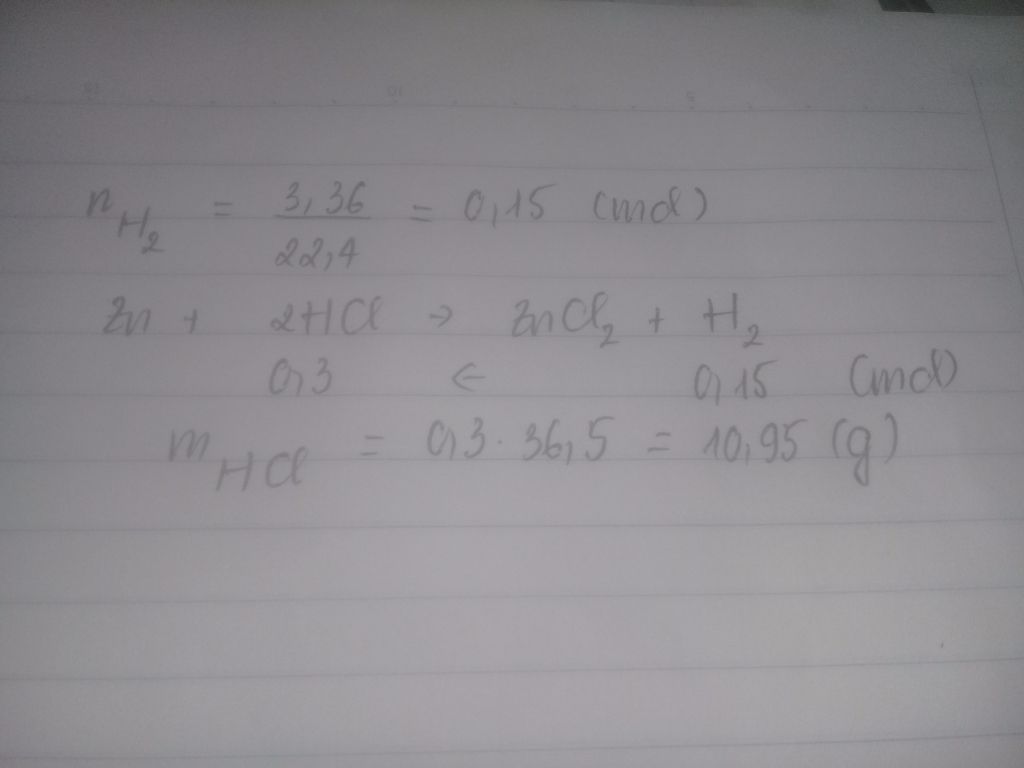 n_H₂ = 3,36 / 22,4 = 0,15 (mol)
Zn + 2HCl → ZnCl₂ + H₂
0,3 ← 0,15 (mol)
m_HCl = 0,3 · 36,5 = 10,95 (g)